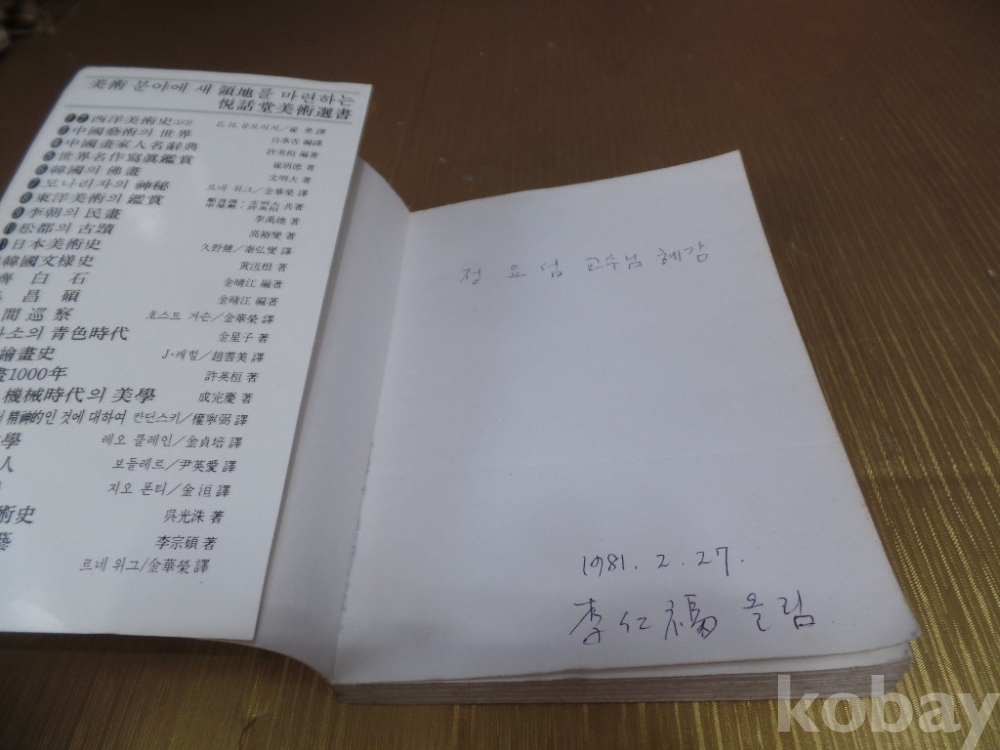 美術 분야에 새 領地를 마련하는
悅話堂美術選書
西洋美術史 E.H. 곰브리치/崔 旻 譯
中國藝術의 世界 白承吉 編譯
中國畫家人名辭典 許英桓 編著
世界名作寫眞鑑賞 崔炳德 著
韓國의 佛畫 文明大 著
모나리자의 神秘 르네 위그/金華榮 譯
東洋美術의 鑑賞 共著
李朝의 民畫 李禹煥 著
松都의 古蹟 高裕燮 著
日本美術史 久野健/秦弘燮 譯
韓國文樣史 黃㳓根 著
齊白石 金晴江 編著
昌碩 金晴江 編著
間巡察 호스트 거슨/金華榮 譯
소의 青色時代 金星子 著
繪畫史 J·케힐/趙善美 譯
畫1000年 許英桓 著
機械時代의 美學 成完慶 著
精神的인 것에 대하여 칸딘스키/權寧弼 譯
學 레오 클레인/金貞培 譯
人 보들레르/尹英愛 譯
지오 폰티/金洹 譯
術史 吳光洙 著
李宗碩 著
르네 위그/金華榮 譯
정요섭 교수님 혜감
1981. 2. 27.
李仁福 올림
kobay